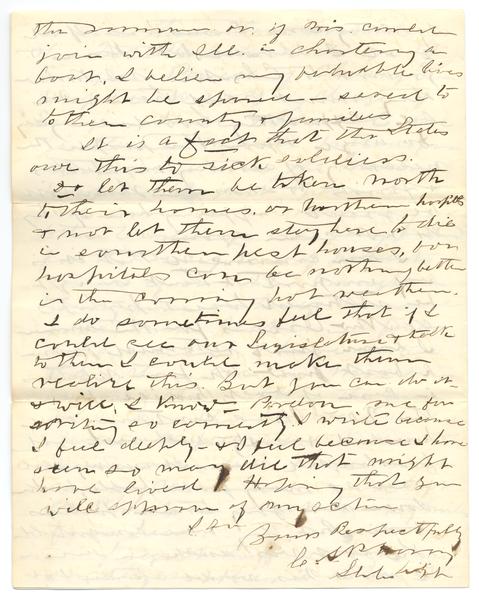 the summer or if Wis. could
join with Ill. in chartering a
boat, I believe many valuable lives
might be spared – saved to
to their country & families
It is a fact that the States
owe this to sick soldiers.
Do let them be taken north
to their homes, or northern hospitals
& not let them stay here to die
in southern pest houses, for
hospitals can be nothing better
in the coming hot weather.
I do sometimes feel that if I
could see our Legislature & talk
to them I could make them
realize this. But you can do it
& will, I know – Pardon me for
writing so earnestly, I write because
I feel deeply – & I feel because I have
seen so many die that might
have lived. Hoping that you
will approve of my action
I am
Yours Respectfully
C. A. P. Harvey
State Agt